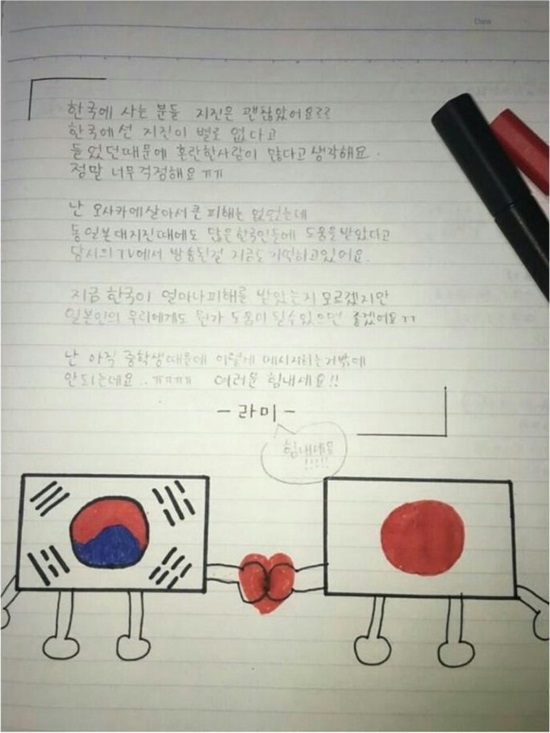 Date
한국에 사는 분들 지진은 괜찮았어요??
한국에선 지진이 별로 없다고
들었던때문에 혼란한사람이 많다고 생각해요.
정말 너무걱정해요 ㅠㅠ
난 오사카에살아서 큰 피해는 없었는데
동일본대지진때에도 많은한국인들에 도움을받았다고
당시의 TV에서 방송된걸 지금도 기억하고있어요.
지금 한국이 얼마나피해를 받았는지 모르겠지만
일본인의 우리에게도 뭔가 도움이 될수있으면 좋겠어요ㅠㅠ
난 아직 중학생때문에 이렇게 메시지하는거밖에
안되는데요..ㅠㅠㅠㅠ 여러분 힘내세요!!
-라미-
힘내세요
!!!!!